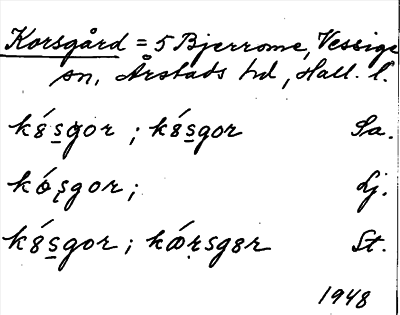 Korsgård = 5 Bjerrome, Vessige
sn, Årstads hd, Hall. l.
k8́s̲gor ; k8́s̲gor Sa.
kǿşgor ; Lj.
k8́s̲gor ; kǽṛsg8r St.
1948